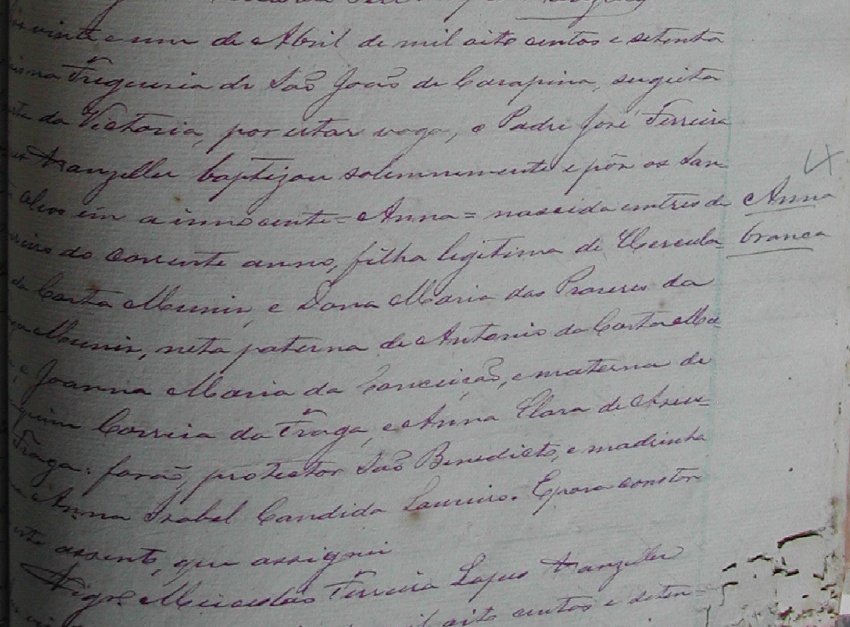 vinte e um de Abril de mil oito centos e setenta
Freguesia de São João de Carapina, sugeita
da Victoria, por estar vaga, o Padre José Ferreira
Vanzeller baptizou solemnemente e pôz os San-
oleos em a innocente = Anna = nascida em tres de
do corrente anno, filha legitima de Hercula
da Costa Muniz, e Dona Maria dos Praseres da
Muniz, neta paterna de Antonio da Costa Mu-
e Joanna Maria da Conceição, e materna de
Correia da Fraga, e Anna Clara de
Fraga: forão, protector São Benedicto, e madrinha
Anna Isabel Candida Loureiro. E para constar
este assento, que assignei
Vigrº Miceslás Ferreira Lopes Vanzeller
oito centos e seten-
4
Anna
branca